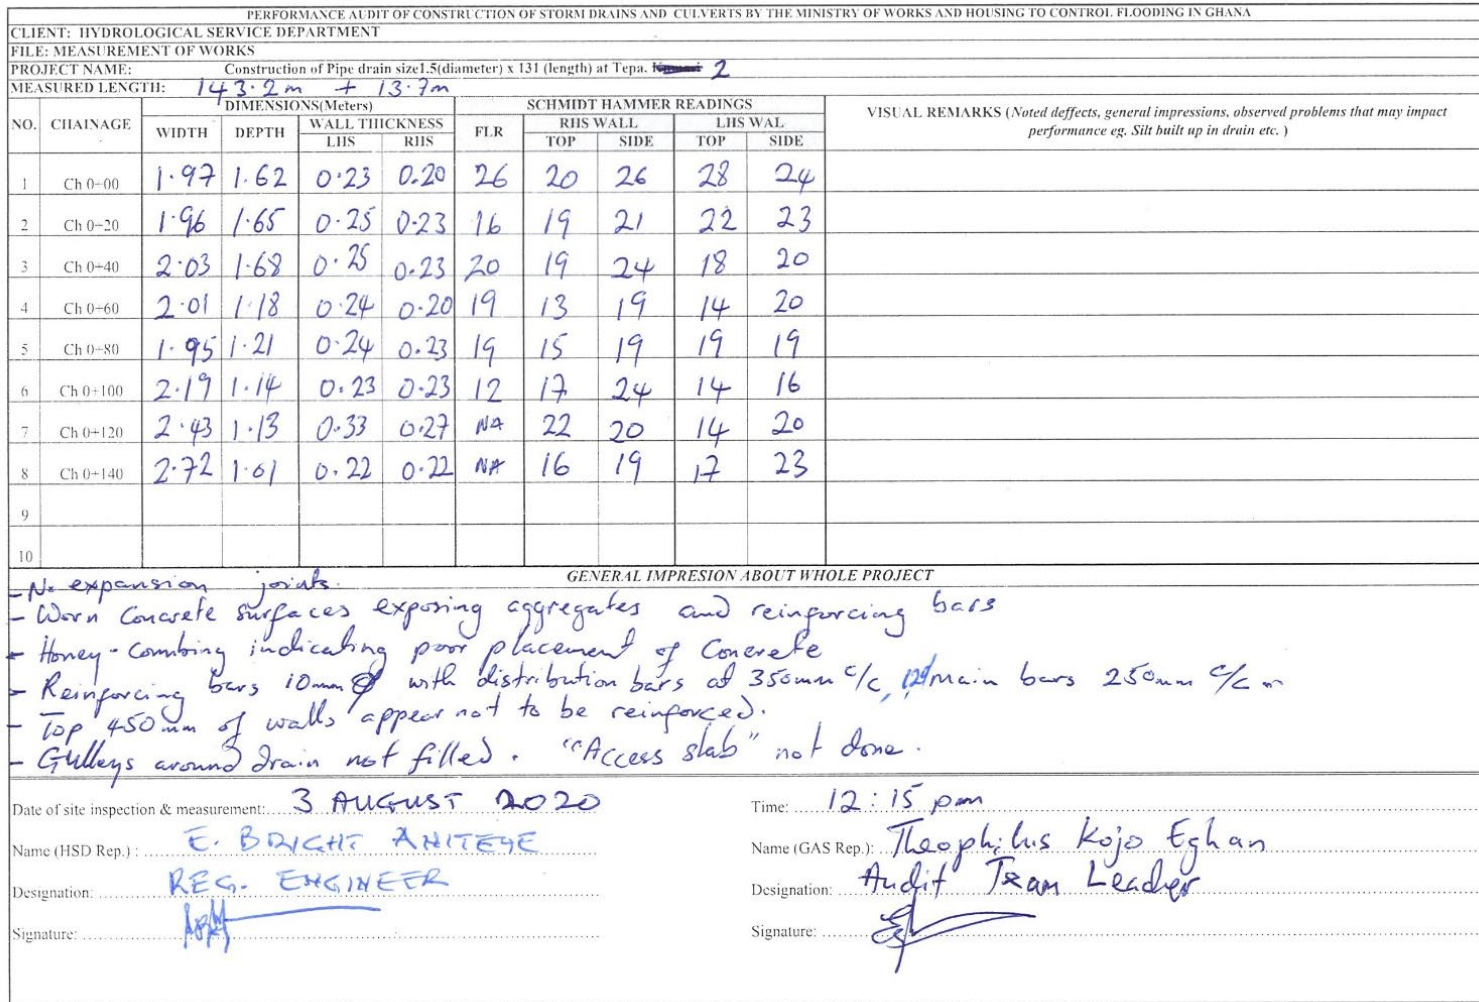 PERFORMANCE AUDIT OF CONSTRUCTION OF STORM DRAINS AND CULVERTS BY THE MINISTRY OF WORKS AND HOUSING TO CONTROL FLOODING IN GHANA
CLIENT: HYDROLOGICAL SERVICE DEPARTMENT
FILE: MEASUREMENT OF WORKS
PROJECT NAME: Construction of Pipe drain size1.5(diameter) x 131 (length) at Tepa. 2
MEASURED LENGTH: 143.2m + 13.7m
NO. CHAINAGE DIMENSIONS(Meters) SCHMIDT HAMMER READINGS VISUAL REMARKS (Noted deffects, general impressions, observed problems that may impact performance eg. Silt built up in drain etc. )
WIDTH DEPTH WALL THICKNESS FLR RHS WALL LHS WAL
LHS RHS TOP SIDE TOP SIDE
1 Ch 0+00 1.97 1.62 0.23 0.20 26 20 26 28 24
2 Ch 0+20 1.96 1.65 0.25 0.23 16 19 21 22 23
3 Ch 0+40 2.03 1.68 0.25 0.23 20 19 24 18 20
4 Ch 0+60 2.01 1.18 0.24 0.20 19 13 19 14 20
5 Ch 0+80 1.95 1.21 0.24 0.23 19 15 19 19 19
6 Ch 0+100 2.19 1.14 0.23 0.23 12 17 24 14 16
7 Ch 0+120 2.43 1.13 0.33 0.27 NA 22 20 14 20
8 Ch 0+140 2.72 1.01 0.22 0.22 NA 16 19 17 23
9
10
GENERAL IMPRESION ABOUT WHOLE PROJECT
- No expansion joints.
- Worn Concrete surfaces exposing aggregates and reinforcing bars
- Honey-Combing indicating poor placement of Concrete
- Reinforcing bars 10mm Ø with distribution bars at 350mm c/c, main bars 250mm c/c
- Top 450mm of walls appear not to be reinforced.
- Gulleys around drain not filled. "Access slab" not done.
Date of site inspection & measurement: 3 AUGUST 2020 Time: 12:15 pm
Name (HSD Rep.) : E. BRIGHT ANITEYE Name (GAS Rep.): Theophilus Kojo Eghan
Designation: REG. ENGINEER Designation: Audit Team Leader
Signature: Signature: